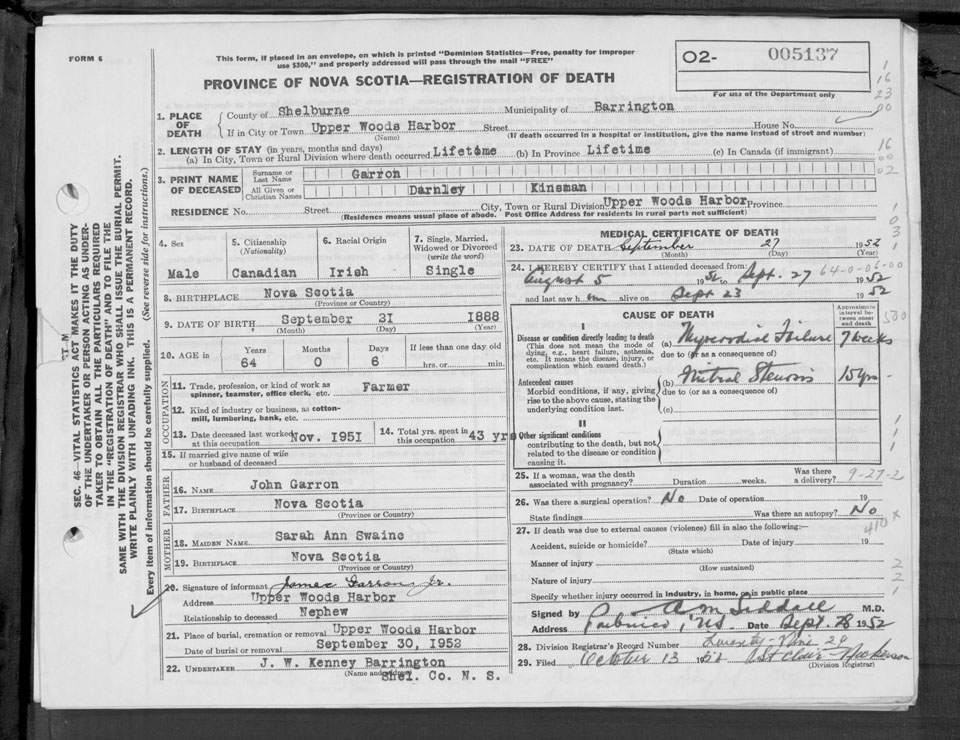 FORM 6
This form, if placed in an envelope, on which is printed "Dominion Statistics—Free, penalty for improper
use $300," and properly addressed will pass through the mail "FREE"
PROVINCE OF NOVA SCOTIA—REGISTRATION OF DEATH
O2- 005137
For use of the Department only
1. PLACE OF DEATH County of Shelburne Municipality of Barrington
If in City or Town Upper Woods Harbor Street House No.
(Name) (If death occurred in a hospital or institution, give the name instead of street and number)
2. LENGTH OF STAY (in years, months and days)
(a) In City, Town or Rural Division where death occurred Lifetime (b) In Province Lifetime (c) In Canada (if immigrant)
3. PRINT NAME OF DECEASED Surname or Last Name Garron
All Given or Christian Names Darnley Kinsman
RESIDENCE No. Street City, Town or Rural Division Upper Woods Harbor Province
(Residence means usual place of abode. Post Office Address for residents in rural parts not sufficient)
4. Sex 5. Citizenship (Nationality) 6. Racial Origin 7. Single, Married, Widowed or Divorced (write the word)
Male Canadian Irish Single
8. BIRTHPLACE Nova Scotia
(Province or Country)
9. DATE OF BIRTH September 31 1888
(Month) (Day) (Year)
10. AGE in Years Months Days If less than one day old
64 0 6 hrs. or min.
OCCUPATION
11. Trade, profession, or kind of work as spinner, teamster, office clerk, etc. Farmer
12. Kind of industry or business, as cotton-mill, lumbering, bank, etc.
13. Date deceased last worked at this occupation Nov. 1951 14. Total yrs. spent in this occupation 43 yrs
15. If married give name of wife or husband of deceased
FATHER
16. NAME John Garron
17. BIRTHPLACE Nova Scotia
(Province or Country)
MOTHER
18. MAIDEN NAME Sarah Ann Swaine
19. BIRTHPLACE Nova Scotia
(Province or Country)
20. Signature of informant James Garron, Jr.
Address Upper Woods Harbor
Relationship to deceased Nephew
21. Place of burial, cremation or removal Upper Woods Harbor
Date of burial or removal September 30, 1952
22. UNDERTAKER J. W. Kenney Barrington
(Name and address) Shel. Co. N. S.
MEDICAL CERTIFICATE OF DEATH
23. DATE OF DEATH September 27 1952
(Month) (Day) (Year)
24. I HEREBY CERTIFY that I attended deceased from: 64-0-06-00
August 5 1952 to Sept. 27 1952
and last saw him alive on Sept 23 1952
CAUSE OF DEATH Approximate interval between onset and death
I
Disease or condition directly leading to death
(This does not mean the mode of dying, e.g., heart failure, asthenia, etc. It means the disease, injury, or complication which caused death.)
(a) Myocardial Failure 7 weeks
due to (or as a consequence of)
Antecedent causes
Morbid conditions, if any, giving rise to the above cause, stating the underlying condition last.
(b) Mitral Stenosis 15 yrs
due to (or as a consequence of)
(c)
II
Other significant conditions
contributing to the death, but not related to the disease or condition causing it.
25. If a woman, was the death associated with pregnancy? Duration weeks. Was there a delivery? 9-27-2
26. Was there a surgical operation? No Date of operation 19
State findings Was there an autopsy? No
27. If death was due to external causes (violence) fill in also the following:— 410 x
Accident, suicide or homicide? Date of injury 19
(State which)
Manner of injury
(How sustained)
Nature of injury
Specify whether injury occurred in industry, in home, or in public place
Signed by A M Siddall M.D.
Address Pubnico, N.S. Date Sept. 28 1952
28. Division Registrar's Record Number Twenty-Nine 29
29. Filed October 13 1952 St Clair Nickerson
(Division Registrar)
SEC. 46—VITAL STATISTICS ACT MAKES IT THE DUTY
OF THE UNDERTAKER OR PERSON ACTING AS UNDER-
TAKER TO OBTAIN ALL THE PARTICULARS REQUIRED
IN THE "REGISTRATION OF DEATH" AND TO FILE THE
SAME WITH THE DIVISION REGISTRAR WHO SHALL ISSUE THE BURIAL PERMIT.
WRITE PLAINLY WITH UNFADING INK. THIS IS A PERMANENT RECORD.
Every item of information should be carefully supplied. (See reverse side for instructions.)